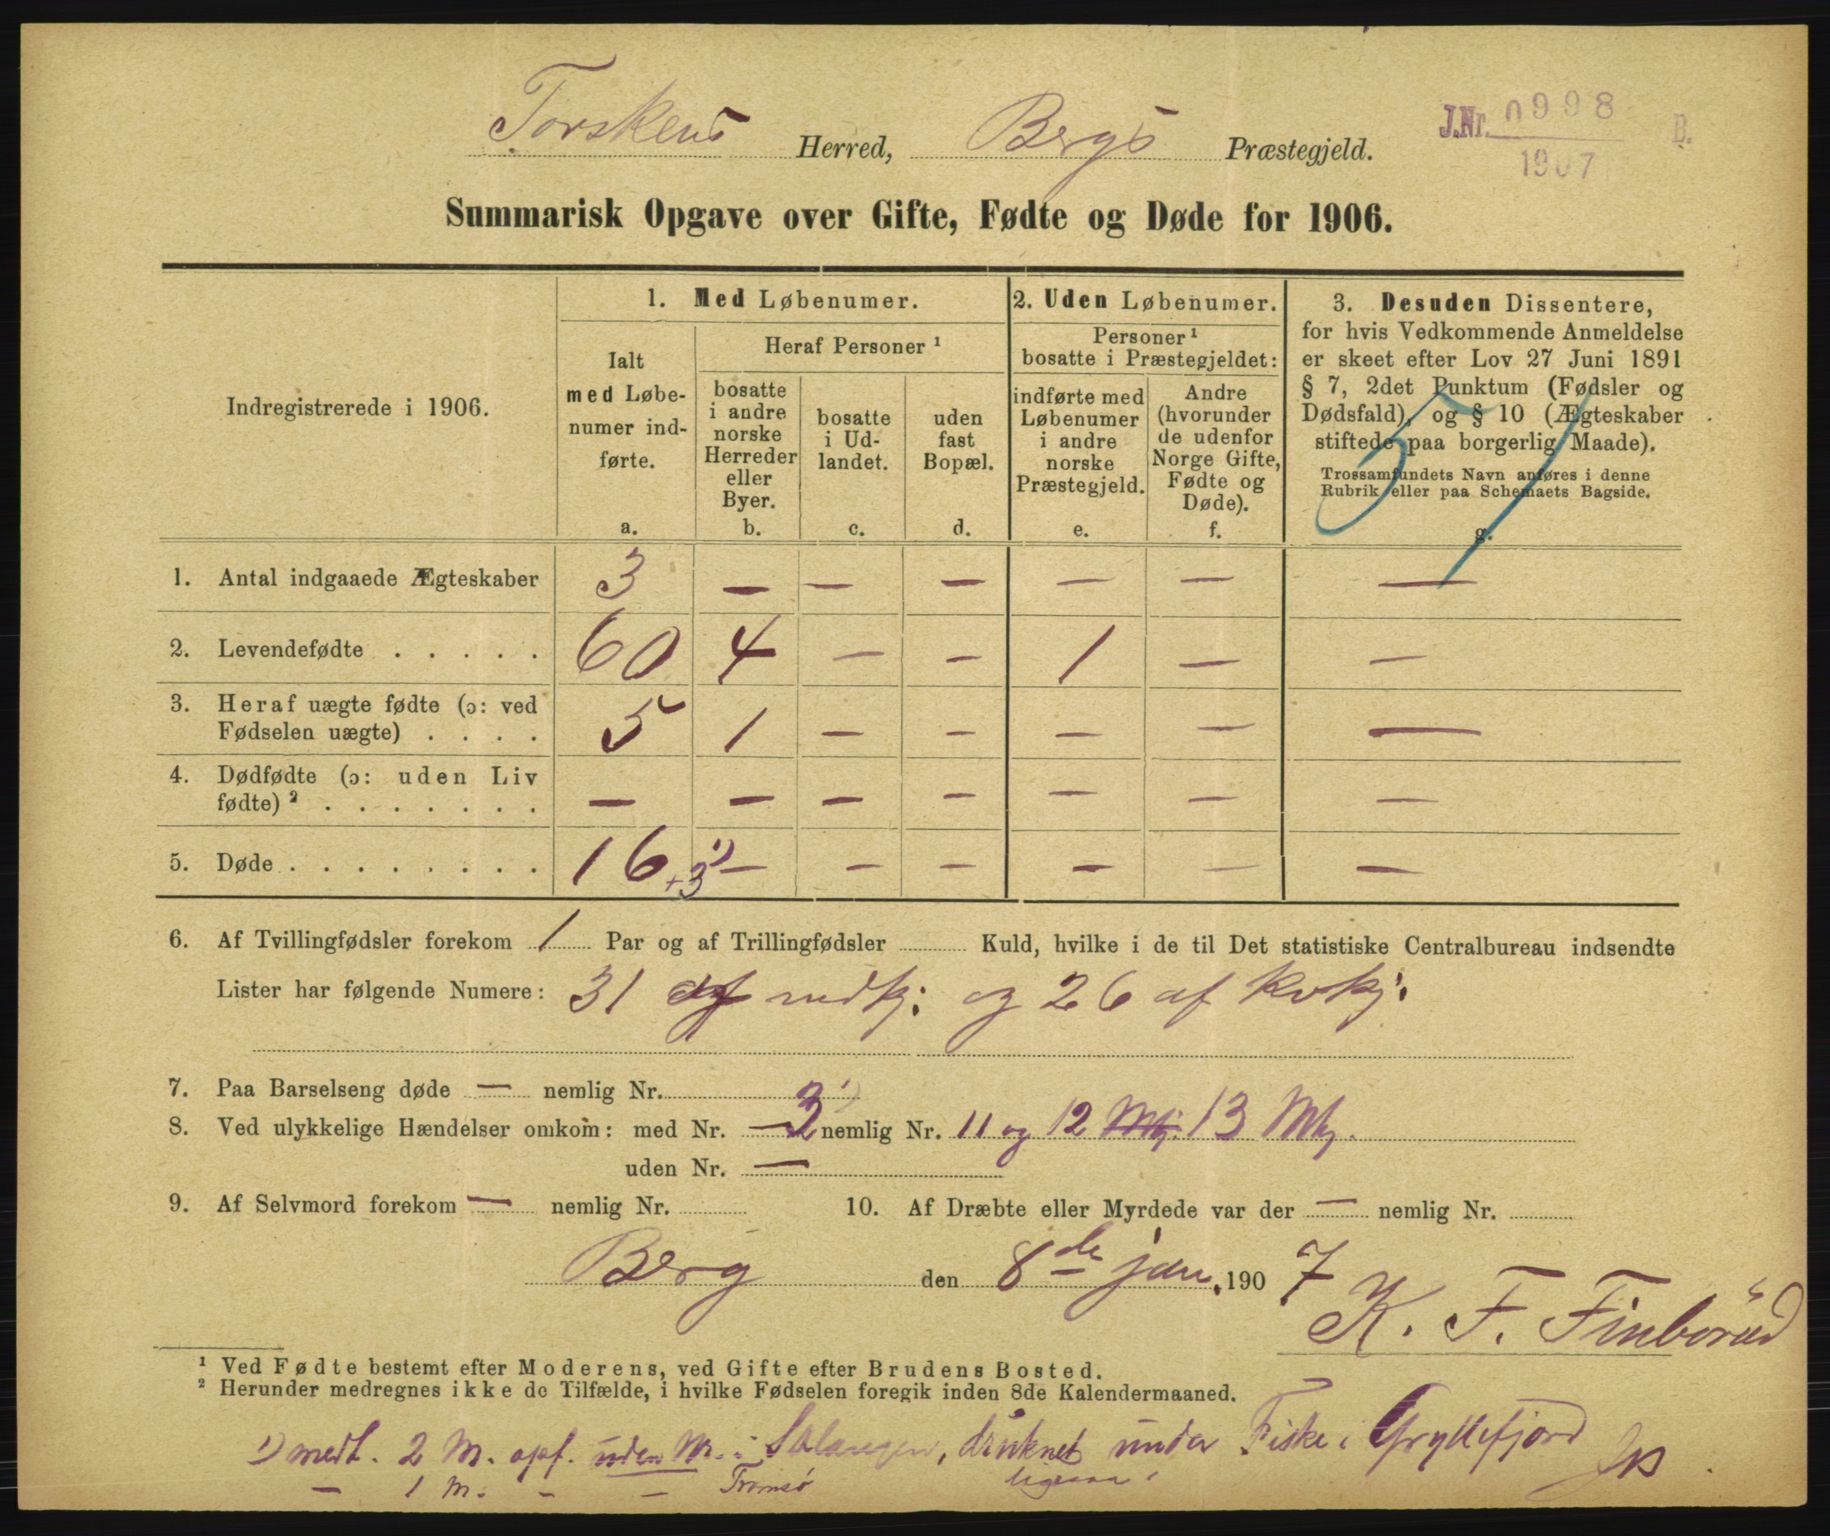 Torskens Herred, Bergs Præstegjeld.
J.Nr. 0998
1907 D.
Summarisk Opgave over Gifte, Fødte og Døde for 1906.
Indregistrerede i 1906.
1. Med Løbenumer.
Ialt
med Løbe-
numer ind-
førte.
a.
Heraf Personer ¹
bosatte
i andre
norske
Herreder
eller
Byer.
b.
bosatte
i Ud-
landet.
c.
uden
fast
Bopæl.
d.
2. Uden Løbenumer.
Personer ¹
bosatte i Præstegjeldet:
indførte med
Løbenumer
i andre
norske
Præstegjeld.
e.
Andre
(hvorunder
de udenfor
Norge Gifte,
Fødte og
Døde).
f.
3. Desuden Dissentere,
for hvis Vedkommende Anmeldelse
er skeet efter Lov 27 Juni 1891
§ 7, 2det Punktum (Fødsler og
Dødsfald), og § 10 (Ægteskaber
stiftede paa borgerlig Maade).
Trossamfundets Navn anføres i denne
Rubrik eller paa Schemaets Bagside.
g.
51
1. Antal indgaaede Ægteskaber 3 — — — — — —
2. Levendefødte . . . . . 60 4 — — 1 — —
3. Heraf uægte fødte (ɔ: ved
Fødselen uægte) . . . . 5 1 — — — — —
4. Dødfødte (ɔ: uden Liv
fødte) ² . . . . . . . — — — — — — —
5. Døde . . . . . . . . 16 +3 ¹) — — — — — —
6. Af Tvillingfødsler forekom 1 Par og af Trillingfødsler Kuld, hvilke i de til Det statistiske Centralbureau indsendte
Lister har følgende Numere: 31 af mdkj: og 26 af kvkj:
7. Paa Barselseng døde — nemlig Nr.
8. Ved ulykkelige Hændelser omkom: med Nr. — 3 ¹) nemlig Nr. 11 og 12 Mkj. 13 Mkj.
uden Nr. —
9. Af Selvmord forekom — nemlig Nr.
10. Af Dræbte eller Myrdede var der — nemlig Nr.
Berg den 8de jan. 1907
K. F. Finborüd
¹ Ved Fødte bestemt efter Moderens, ved Gifte efter Brudens Bosted.
² Herunder medregnes ikke de Tilfælde, i hvilke Fødselen foregik inden 8de Kalendermaaned.
¹) medt. 2 M. opf. uden Nr. i Salangen, druknet under Fiske i Gryllefjord
— 1 M. — — Tromsø ligesaa